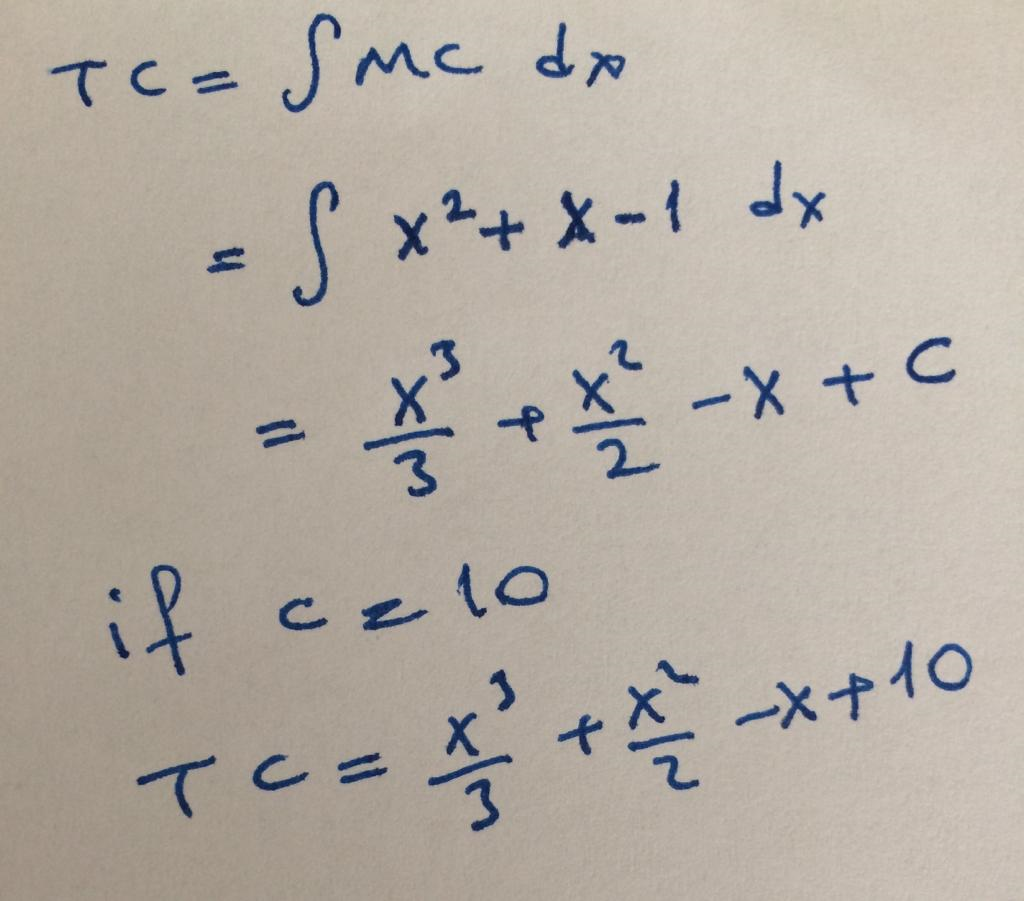 TC = ∫ MC dx
= ∫ x² + x - 1 dx
= x³/3 + x²/2 - x + C
if c = 10
TC = x³/3 + x²/2 - x + 10